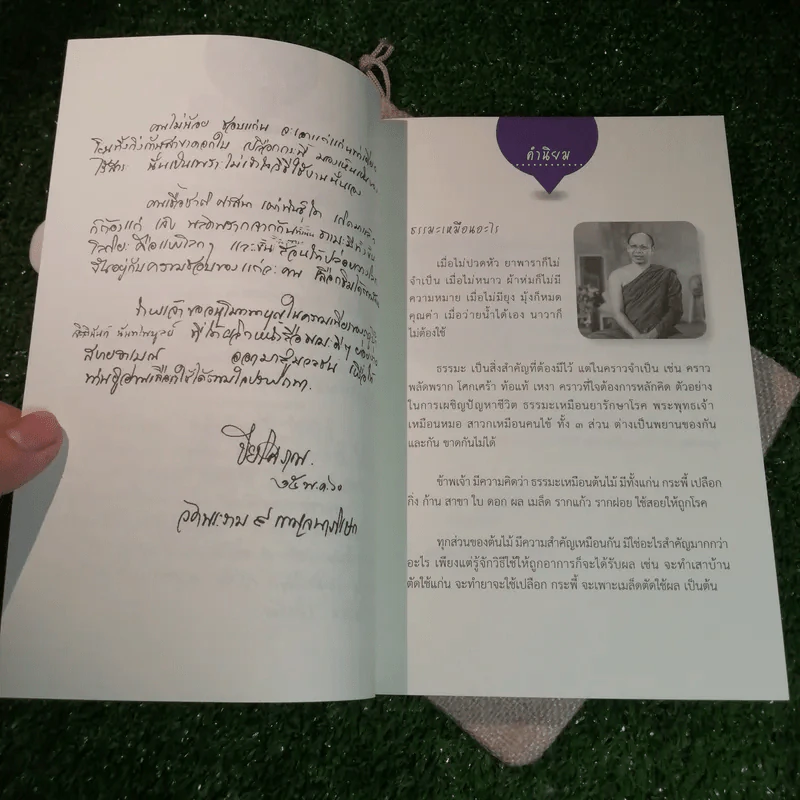 คนไม่น้อย ชอบแก่น จะเอาแต่แก่นท่าเดียว
โยนทิ้งกิ่งก้านสาขาดอกใบ เปลือกกระพี้ มองเห็นเป็น
ไร้สาระ นั่นเป็นเพราะไม่เข้าใจวิธีใช้งานนั่นเอง
คนเชื้อชาติ ศาสนา เผ่าพันธุ์ใด เกิดมาแล้ว
ก็ต้องแก่ เจ็บ พลัดพรากจากกัน
และ สอนให้ปล่อยวาง
ขึ้นอยู่กับความชอบของแต่ละคน
ข้าพเจ้าขออนุโมทนาบุญในความเพียรของ
ที่ได้
ออกมาสู่
ท่านผู้อ่านเลือกใช้ได้ตามใจปรารถนา.
ปิยโสภณ.
๒๕ พ.ค. ๖๐
วัดพระราม ๙ กาญจนาภิเษก
คำนิยม
ธรรมะเหมือนอะไร
เมื่อไม่ปวดหัว ยาพาราก็ไม่
จำเป็น เมื่อไม่หนาว ผ้าห่มก็ไม่มี
ความหมาย เมื่อไม่มียุง มุ้งก็หมด
คุณค่า เมื่อว่ายน้ำได้เอง นาวาก็
ไม่ต้องใช้
ธรรมะ เป็นสิ่งสำคัญที่ต้องมีไว้ แต่ในคราวจำเป็น เช่น คราว
พลัดพราก โศกเศร้า ท้อแท้ เหงา คราวที่ใจต้องการหลักคิด ตัวอย่าง
ในการเผชิญปัญหาชีวิต ธรรมะเหมือนยารักษาโรค พระพุทธเจ้า
เหมือนหมอ สาวกเหมือนคนไข้ ทั้ง ๓ ส่วน ต่างเป็นพยานของกัน
และกัน ขาดกันไม่ได้
ข้าพเจ้า มีความคิดว่า ธรรมะเหมือนต้นไม้ มีทั้งแก่น กระพี้ เปลือก
กิ่ง ก้าน สาขา ใบ ดอก ผล เมล็ด รากแก้ว รากฝอย ใช้สอยให้ถูกโรค
ทุกส่วนของต้นไม้ มีความสำคัญเหมือนกัน มิใช่อะไรสำคัญมากกว่า
อะไร เพียงแต่รู้จักวิธีใช้ให้ถูกอาการก็จะได้รับผล เช่น จะทำเสาบ้าน
ตัดใช้แก่น จะทำยาจะใช้เปลือก กระพี้ จะเพาะเมล็ดตัดใช้ผล เป็นต้น